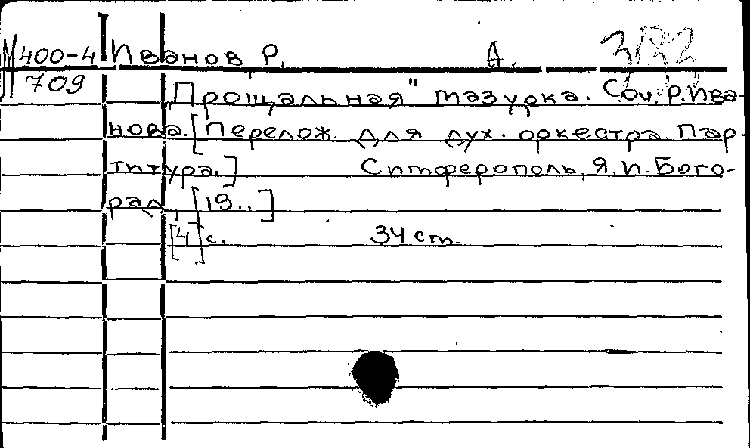 М400-4 Иванов Р. А. 3/82
709 „Прощальная" мазурка. Соч. Р. Ива-
нова. [Перелож. для дух. оркестра. Пар-
титура.] Симферополь, Я. И. Бого-
рад, [19..]
[4] с. 34 см.